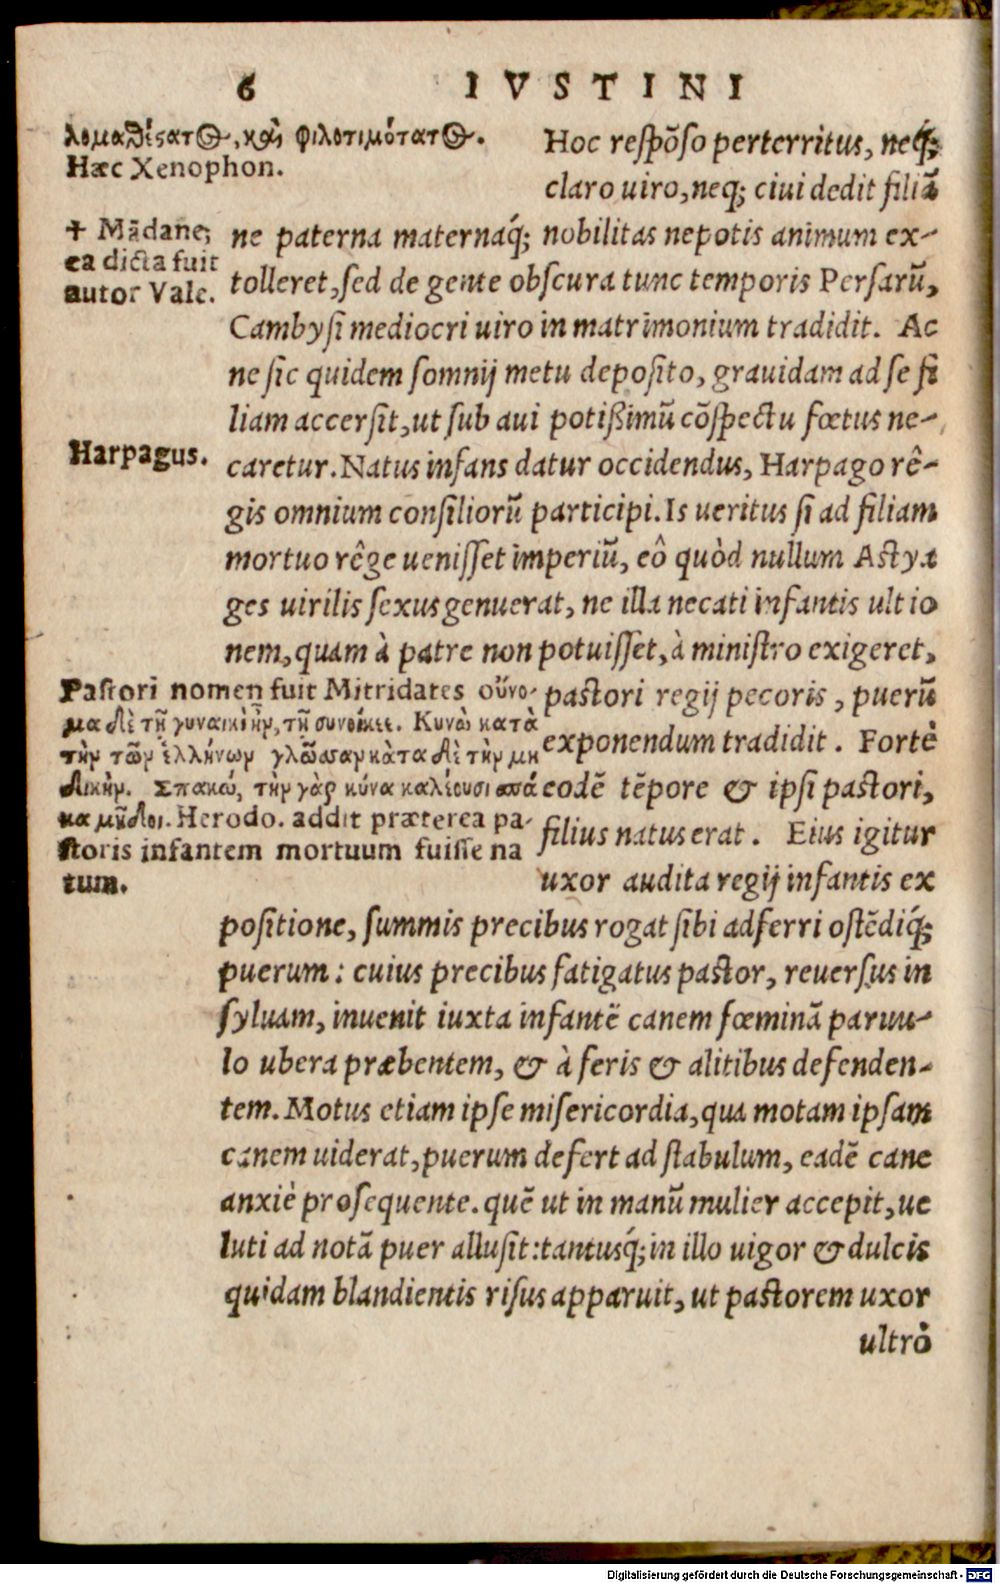 6 IVSTINI
λομαθέστατος, καὶ φιλοτιμότατος.
Hæc Xenophon.
Hoc respōso perterritus, neq́;
claro uiro, neq; ciui dedit filiā
✝ Mādane,
ea dicta fuit
autor Vale.
ne paterna maternaq́; nobilitas nepotis animum ex-
tolleret, sed de gente obscura tunc temporis Persarū,
Cambysi mediocri uiro in matrimonium tradidit. Ac
ne sic quidem somnij metu deposito, grauidam ad se fi
liam accersit, ut sub aui potißimū cōspectu fœtus ne-
Harpagus.
caretur. Natus infans datur occidendus, Harpago rê-
gis omnium consiliorū participi. Is ueritus si ad filiam
mortuo rêge uenisset imperiū, eô quòd nullum Astya
ges uirilis sexus genuerat, ne illa necati infantis ultio
nem, quam à patre non potuisset, à ministro exigeret,
Pastori nomen fuit Mitridates οὔνο-
μα δὲ τῇ γυναικὶ ἦν, τῇ συνοίκεε. Κυνὼ κατὰ
τὴν τῶν ἑλλήνων γλῶσσαν κὰτα δὲ τὴν μη
δικὴν. Σπακώ, τὴν γὰρ κύνα καλέουσι σπά
κα μῆδοι. Herodo. addit præterea pa-
storis infantem mortuum fuisse na
tum.
pastori regij pecoris, puerū
exponendum tradidit. Fortè
eodē tēpore & ipsi pastori,
filius natus erat. Eius igitur
uxor audita regij infantis ex
positione, summis precibus rogat sibi adferri ostēdiq́;
puerum: cuius precibus fatigatus pastor, reuersus in
syluam, inuenit iuxta infantē canem fœminā paruu-
lo ubera præbentem, & à feris & alitibus defenden-
tem. Motus etiam ipse misericordia, qua motam ipsam
canem uiderat, puerum defert ad stabulum, eadē cane
anxiè prosequente. quē ut in manū mulier accepit, ue
luti ad notā puer allusit: tantusq́; in illo uigor & dulcis
quidam blandientis risus apparuit, ut pastorem uxor
ultrò
Digitalisierung gefördert durch die Deutsche Forschungsgemeinschaft - DFG